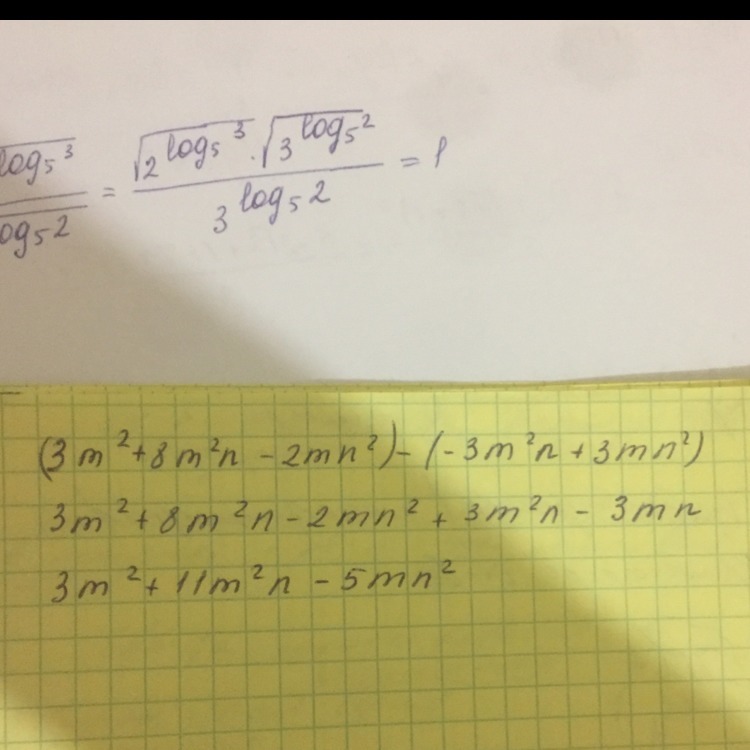 √log₅3 / √log₅2 = √2^(log₅3) · √3^(log₅2) / 3^(log₅2) = 1
(3m²+8m²n - 2mn²) - (-3m²n + 3mn²)
3m² + 8m²n - 2mn² + 3m²n - 3mn
3m² + 11m²n - 5mn²